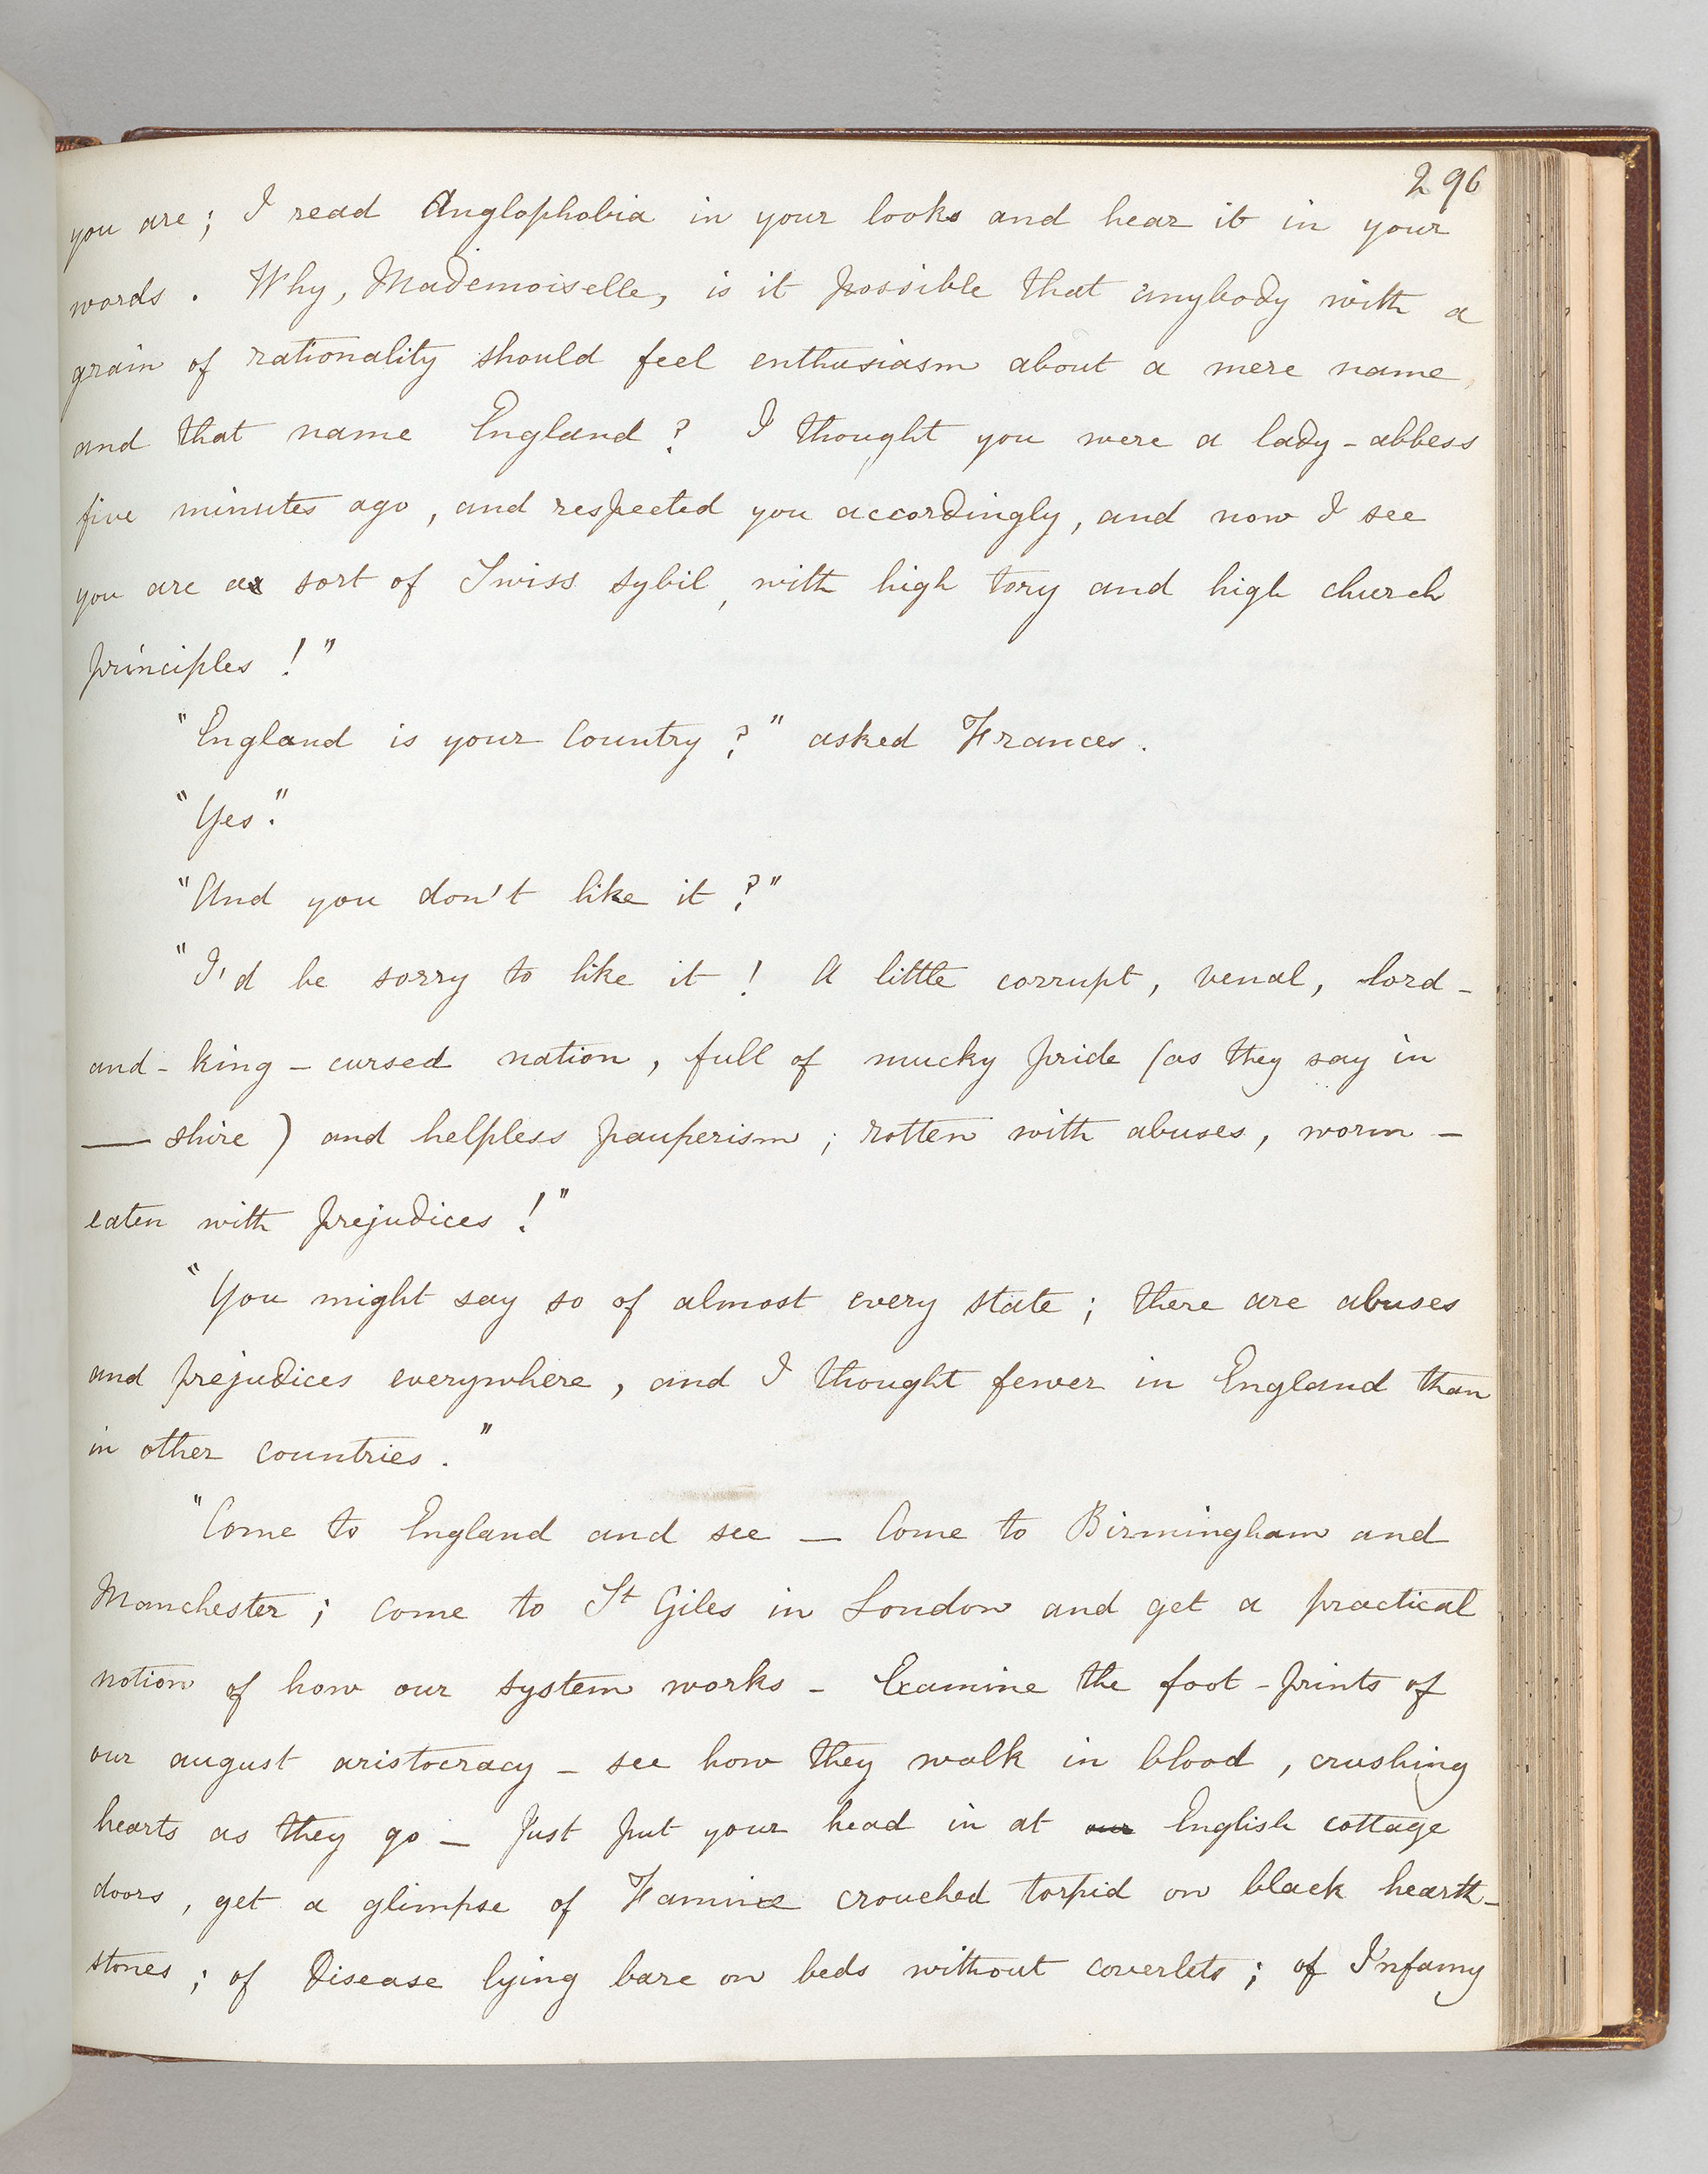 296
you are; I read Anglophobia in your looks and hear it in your
words. Why, Mademoiselle, is it possible that anybody with a
grain of rationality should feel enthusiasm about a mere name,
and that name England? I thought you were a lady-abbess
five minutes ago, and respected you accordingly, and now I see
you are a sort of Swiss sybil, with high tory and high church
principles!"
"England is your Country?" asked Frances.
"Yes."
"And you don't like it?"
"I'd be sorry to like it! A little corrupt, venal, lord-
and-king-cursed nation, full of mucky pride (as they say in
—shire) and helpless pauperism; rotten with abuses, worm-
eaten with prejudices!"
"You might say so of almost every state; there are abuses
and prejudices everywhere, and I thought fewer in England than
in other countries."
"Come to England and see — Come to Birmingham and
Manchester; come to St Giles in London and get a practical
notion of how our system works - Examine the foot-prints of
our august aristocracy - see how they walk in blood, crushing
hearts as they go — Just put your head in at our English cottage
doors, get a glimpse of Famine crouched torpid on black hearth-
stones; of Disease lying bare on beds without coverlets; of Infamy